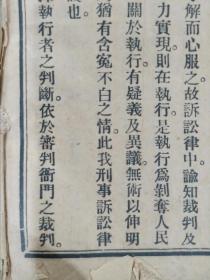 解而心服之。故訴訟律中諭知裁判及
力實現。則在執行。是執行爲剝奪人民
關於執行有疑義及異議。無術以伸明
猶有含冤不白之情。此我刑事訴訟律
也。
執行者之判斷。依於審判衙門之裁判。